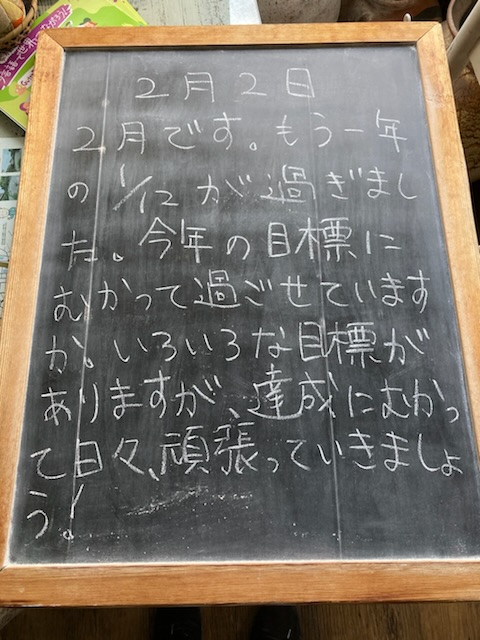 2月2日
2月です。もう一年
の1/12が過ぎまし
た。今年の目標に
むかって過ごせています
か。いろいろな目標が
ありますが、達成にむかっ
て日々、頑張っていきましょ
う!